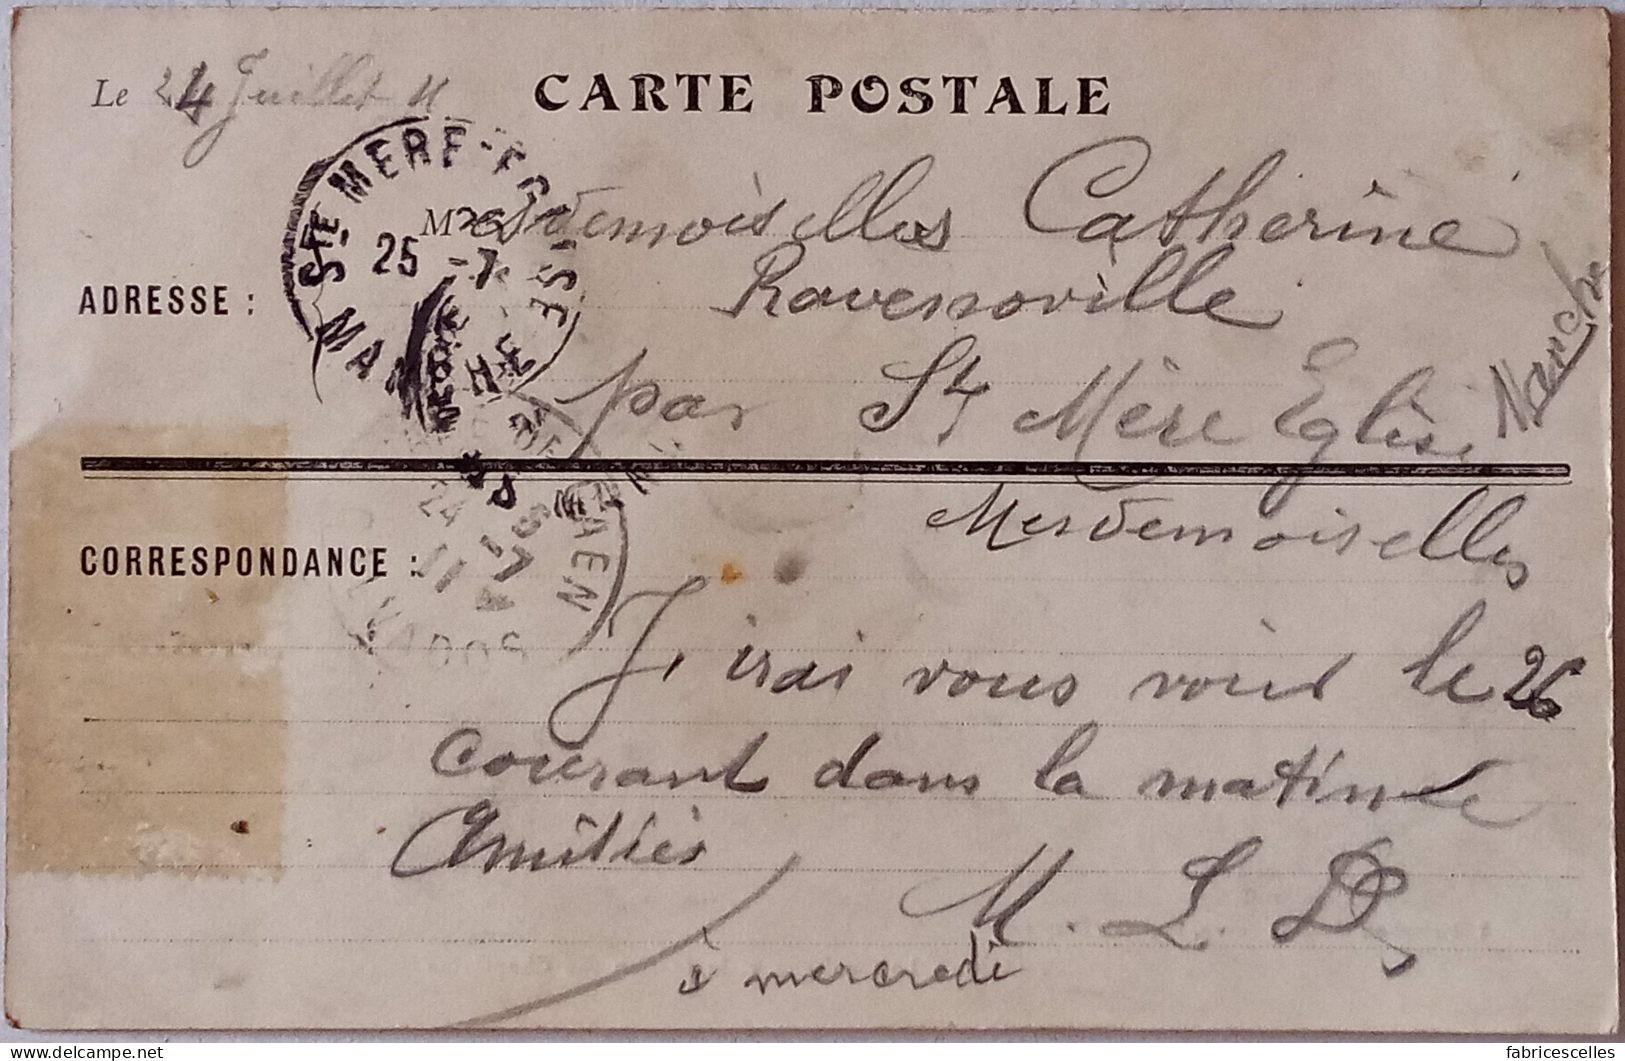 CARTE POSTALE
Le 24 Juillet 11
STE MERE-EGLISE
25 -7
MANCHE
Mesdemoiselles Catherine
ADRESSE :
Ravenoville
par St Mère Eglise
Manche
CORRESPONDANCE :
24
11
CALVADOS
Mesdemoiselles
J'irai vous voir le 26
courant dans la matinée
Amitiés
M. L. D
à mercredi
fabricescelles